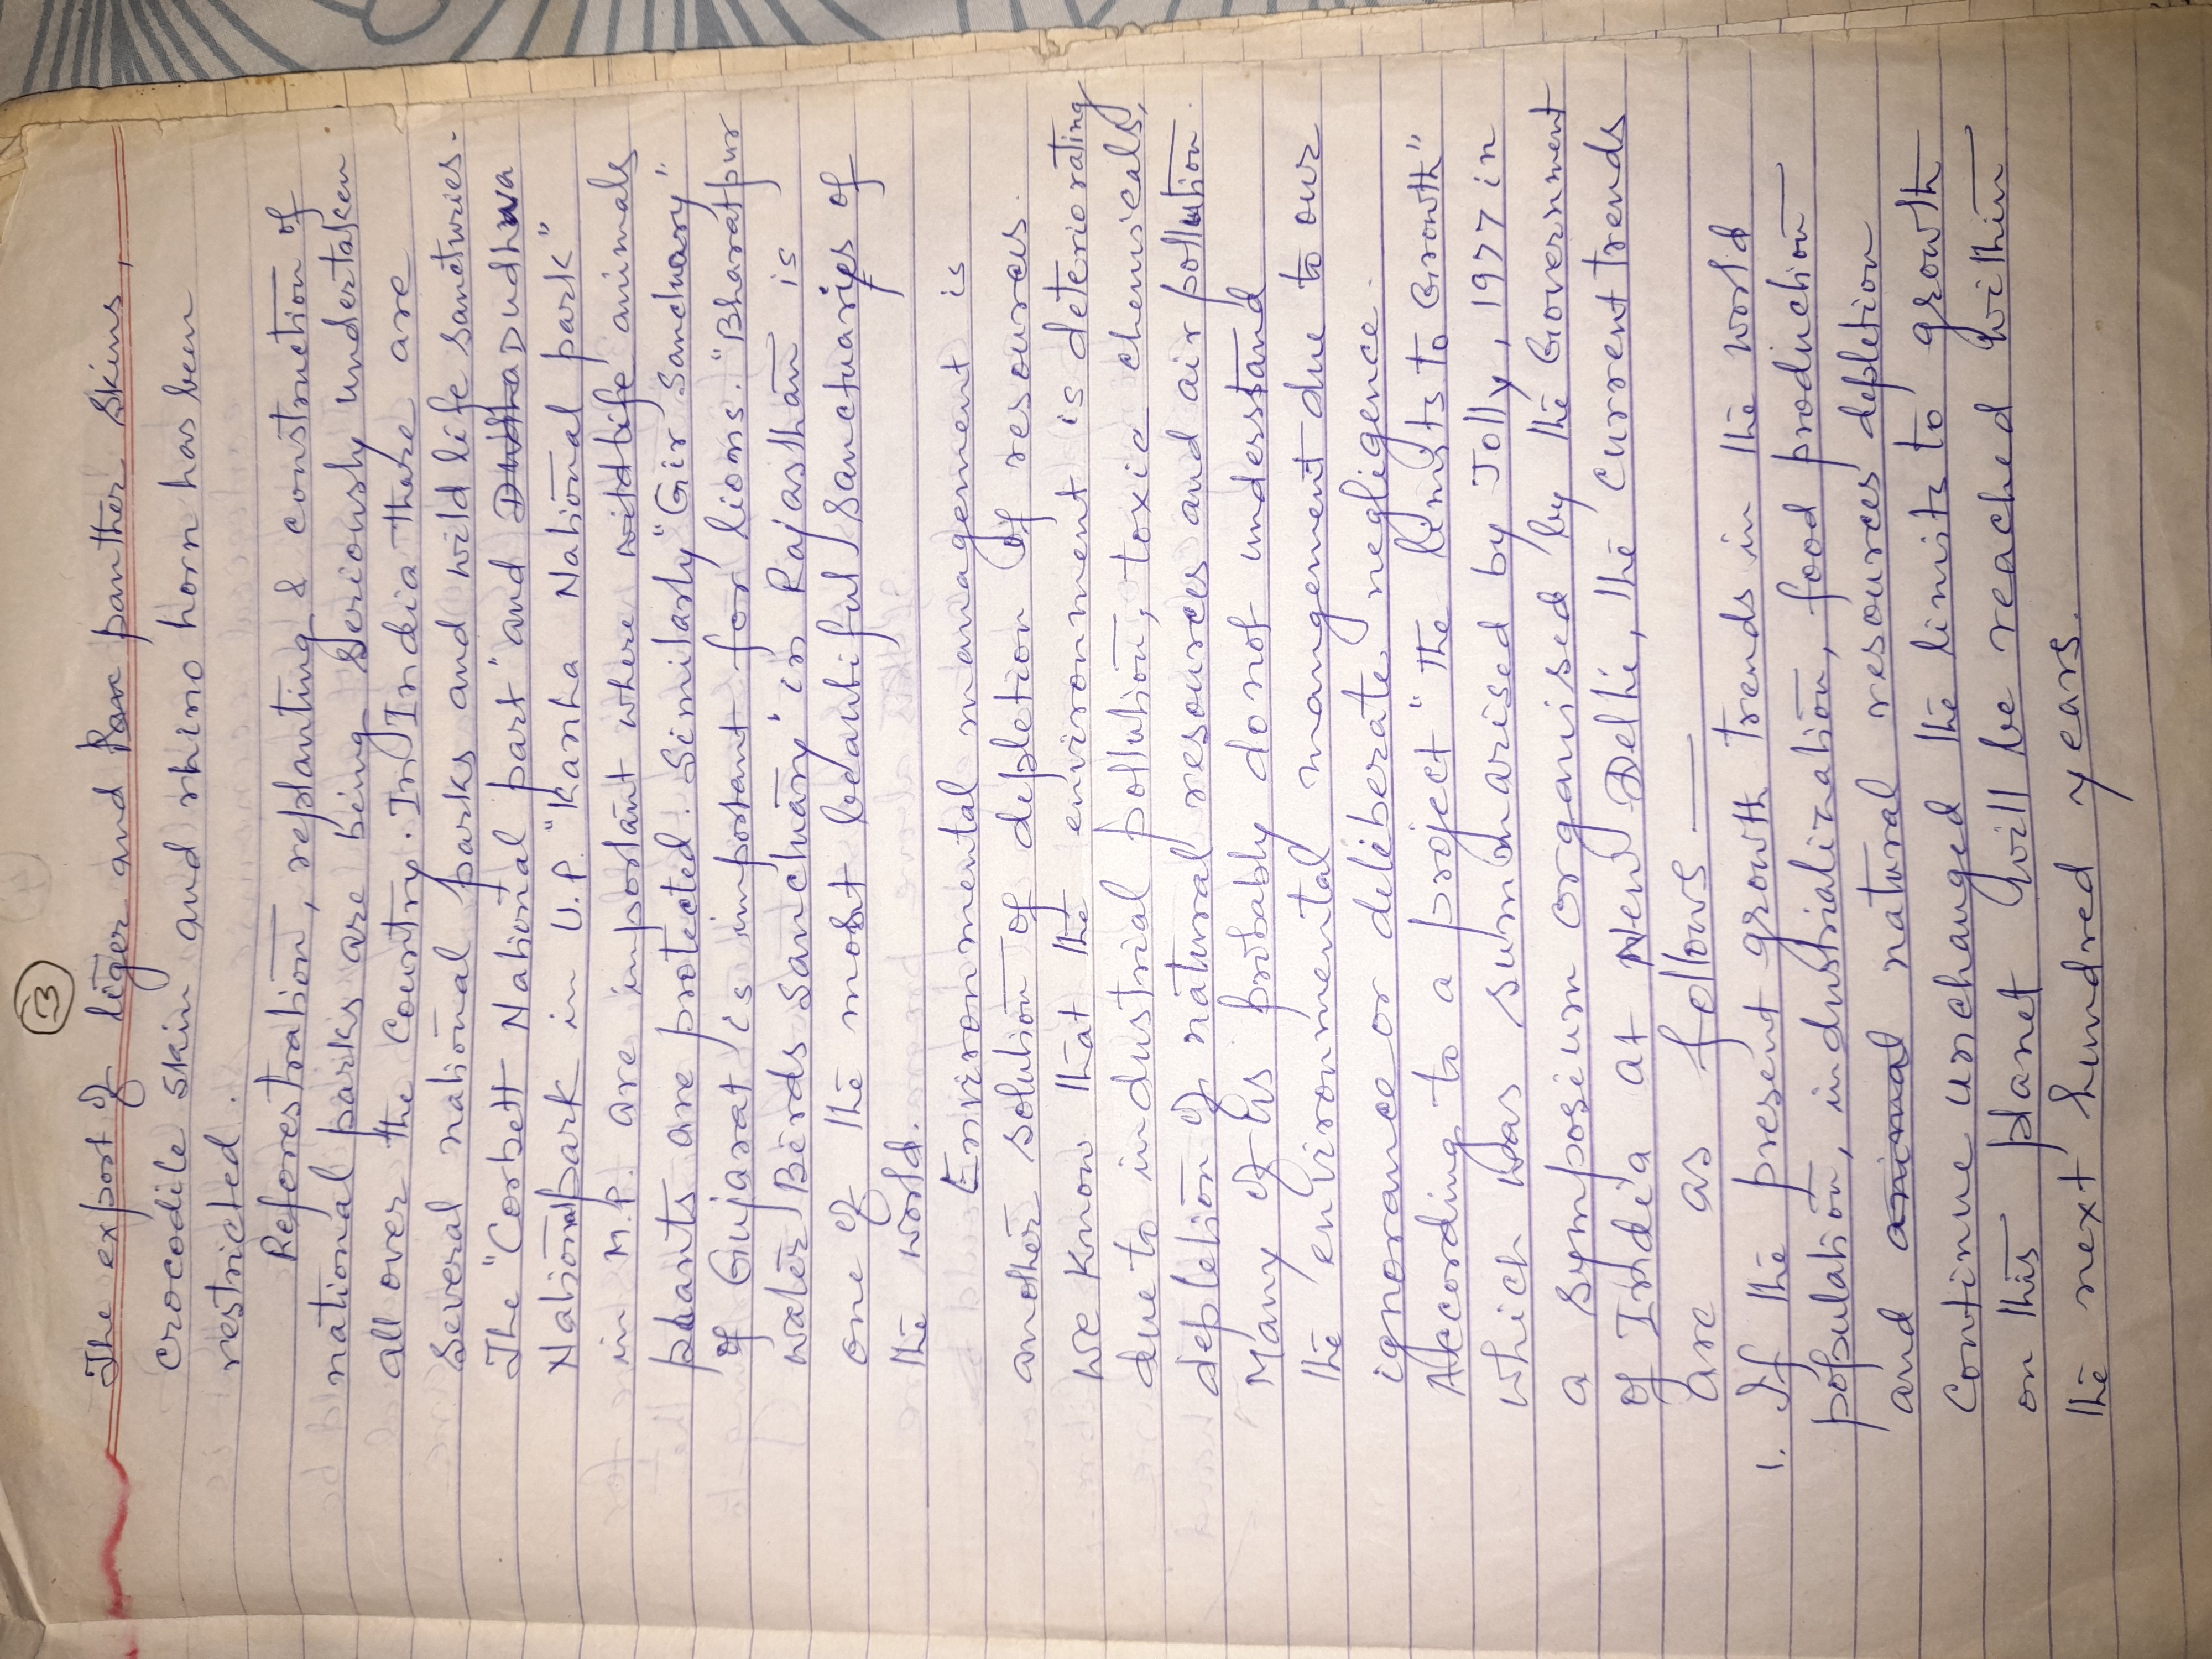 3
The export of tiger and panther skins,
crocodile skin and rhino horn has been
restricted.
Reforestration, replanting & construction of
national parks are being seriously undertaken
all over the country. In India there are
several national parks and wild life sancturies.
The "Corbett National part" and Dudhwa
National park in U.P. "Kanha National park"
in M.P. are important where wildlife animals
plants are protected. Similarly "Gir Sancluary"
of Gujarat is important for lions. "Bharatpur
water Birds Sanctuary' in Rajasthan is
one of the most beautiful sanctuaries of
the world.
Environmental management is
another solution of depletion of resources.
We know that the environment is deteriorating
due to industrial pollution, toxic chemicals,
depletion of natural resources and air pollution.
Many of us probably do not understand
the environmental mangement due to our
ignorance or deliberate negligence.
According to a project "The limits to Growth"
which was summarised by Jolly, 1977 in
a symposium organised by the Government
of India at New Delhi, the current trends
are as follows —
1. If the present growth trends in the world
population, industrialization, food production
and natural resources depletion
continue unchanged the limits to growth
on this planet will be reached within
the next hundred years.